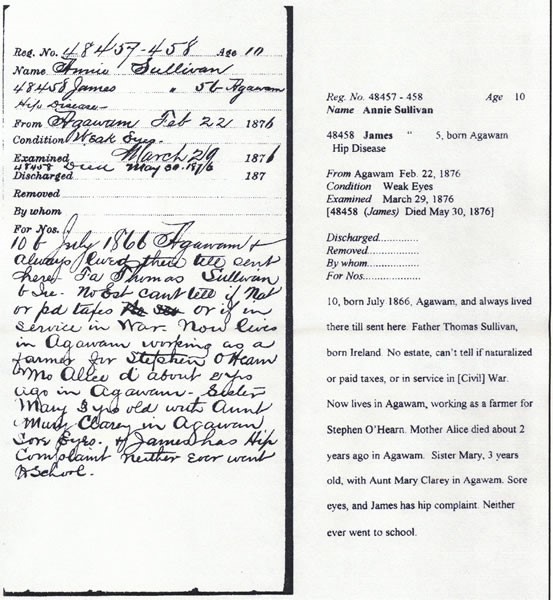 Reg. No. 48457-458 Age 10
Name Annie Sullivan
48458 James " 5 b Agawam
Hip Disease
From Agawam Feb 22 1876
Condition Weak Eyes.
Examined March 29 1876
48458 Died May 30. 1876
Discharged 187
Removed
By whom
For Nos.
10 b July 1866 Agawam &
always lived there till sent
here Fa Thomas Sullivan
b Ire. No Est cant tell if Nat
or pd taxes or if in
service in War. Now lives
in Agawam working as a
farmer for Stephen O'Hearn
Mo Allice d about 2 yrs
ago in Agawam. Sister
Mary 3 yrs old with Aunt
Mary Clarey in Agawam
Sore Eyes. & James has Hip
Complaint neither ever went
to School.
Reg. No. 48457 - 458 Age 10
Name Annie Sullivan
48458 James " 5, born Agawam
Hip Disease
From Agawam Feb. 22, 1876
Condition Weak Eyes
Examined March 29, 1876
[48458 (James) Died May 30, 1876]
Discharged..............
Removed................
By whom................
For Nos...................
10, born July 1866, Agawam, and always lived
there till sent here. Father Thomas Sullivan,
born Ireland. No estate, can't tell if naturalized
or paid taxes, or in service in [Civil] War.
Now lives in Agawam, working as a farmer for
Stephen O'Hearn. Mother Alice died about 2
years ago in Agawam. Sister Mary, 3 years
old, with Aunt Mary Clarey in Agawam. Sore
eyes, and James has hip complaint. Neither
ever went to school.